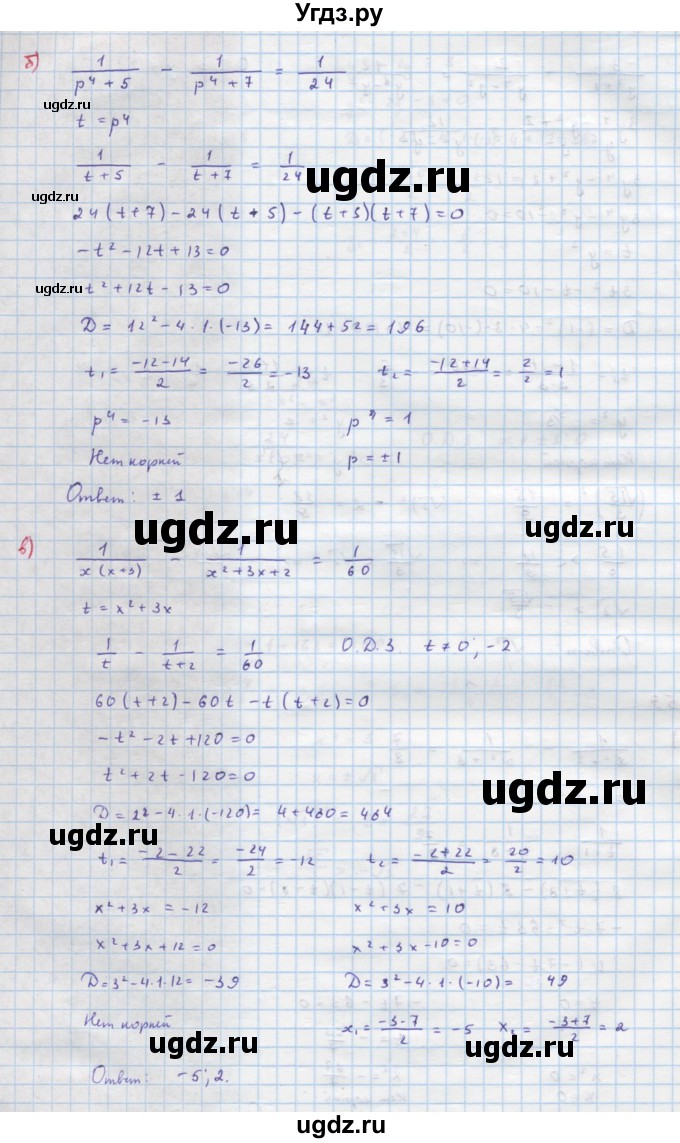 Угдз.ру
б) 1/(p⁴ + 5) − 1/(p⁴ + 7) = 1/24
ugdz.ru
t = p⁴
1/(t + 5) − 1/(t + 7) = 1/24
ugdz.ru
ugdz.ru
24(t + 7) − 24(t + 5) − (t + 5)(t + 7) = 0
−t² − 12t + 13 = 0
ugdz.ru
t² + 12t − 13 = 0
D = 12² − 4 · 1 · (−13) = 144 + 52 = 196
t₁ = (−12 − 14)/2 = −26/2 = −13 t₂ = (−12 + 14)/2 = 2/2 = 1
p⁴ = −13 p⁴ = 1
Нет корней p = ± 1
Ответ: ± 1
ugdz.ru
ugdz.ru
в) 1/(x(x+3)) − 1/(x² + 3x + 2) = 1/60
t = x² + 3x
1/t − 1/(t+2) = 1/60 О.Д.З t ≠ 0; −2
60(t + 2) − 60t − t(t + 2) = 0
−t² − 2t + 120 = 0
t² + 2t − 120 = 0
ugdz.ru
D = 2² − 4 · 1 · (−120) = 4 + 480 = 484
ugdz.ru
t₁ = (−2 − 22)/2 = −24/2 = −12 t₂ = (−2 + 22)/2 = 20/2 = 10
x² + 3x = −12 x² + 3x = 10
x² + 3x + 12 = 0 x² + 3x − 10 = 0
D = 3² − 4 · 1 · 12 = −39 D = 3² − 4 · 1 · (−10) = 49
Нет корней x₁ = (−3 − 7)/2 = −5 x₂ = (−3 + 7)/2 = 2
ugdz.ru
ugdz.ru
Ответ: −5; 2.
ugdz.ru